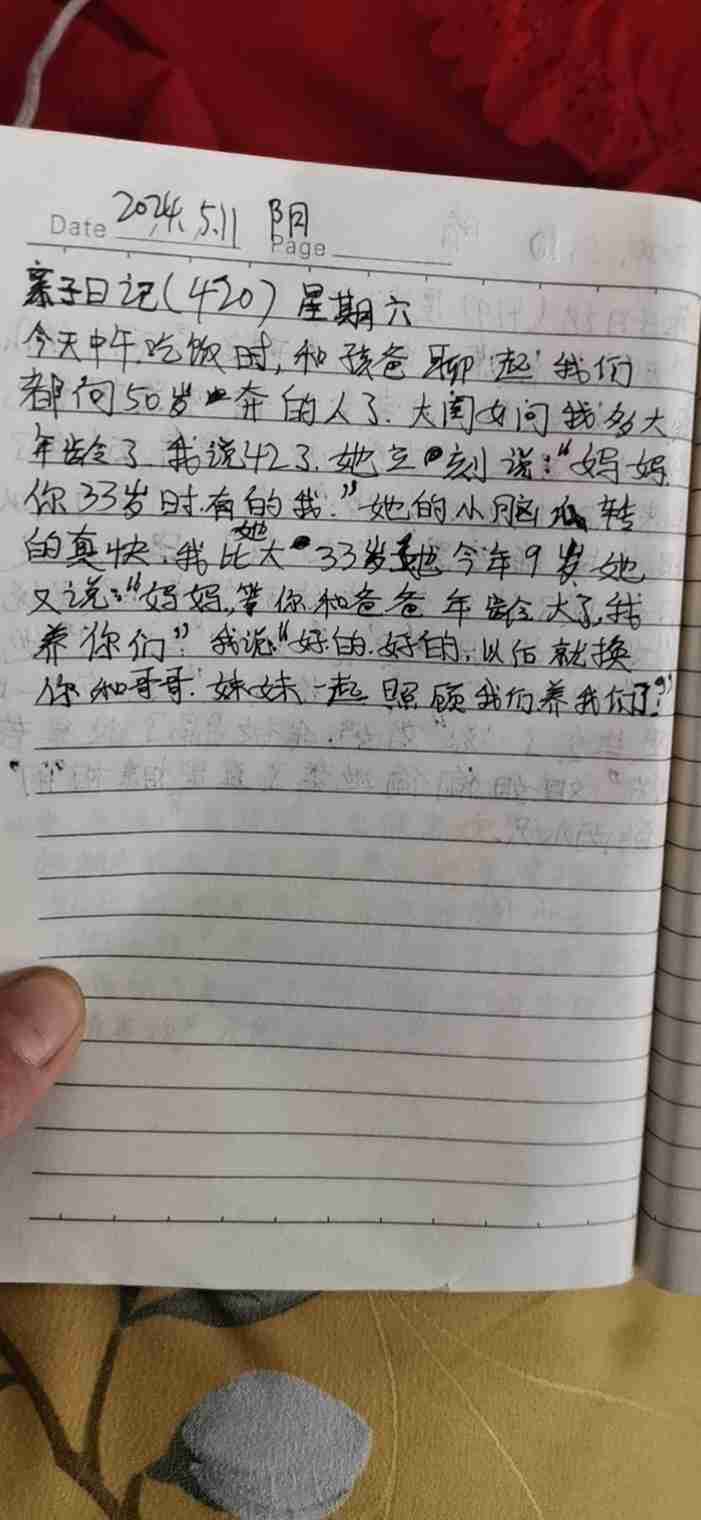 Date 2024.5.11 阴
Page
亲子日记(420) 星期六
今天中午吃饭时,和孩爸聊起我们
都向50岁奔的人了.大闺女问我多大
年龄了.我说42了.她立刻说:“妈妈
你33岁时有的我.”她的小脑瓜转
的真快.我比她大33岁她今年9岁她
又说:“妈妈,等你和爸爸年龄大了,我
养你们”我说“好的.好的,以后就换
你和哥哥.妹妹一起照顾我们养我们了?”